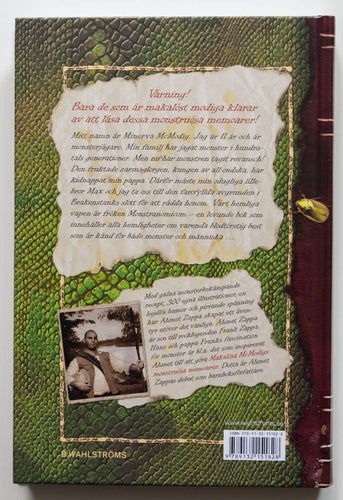 Varning!
Bara de som är makalöst modiga klarar
av att läsa dessa monstruösa memoarer!
Mitt namn är Minerva McModig. Jag är 11 år och är
monsterjägare. Min familj har jagat monster i hundra-
tals generationer. Men nu har monstren tagit revansch!
Den fruktade zarmaglorgen, kungen av all ondska, har
kidnappat min pappa. Därför måste min odugliga lille-
bror Max och jag ta oss till den farofyllda avgrunden i
Brakenstanks slott för att rädda honom. Vårt hemliga
vapen är fröken Monstranomicom – en levande bok som
innehåller alla hemligheter om varenda blodtörstig best
som är känd för både monster och människa . . .
Med galna monsterbekämpande
recept, 300 egna illustrationer, en
hejdlös humor och pirrande spänning
har Ahmet Zappa skapat ett även-
tyr utöver det vanliga. Ahmet Zappa
är son till rocklegenden Frank Zappa.
Hans och pappa Franks fascination
för monster är bl.a. det som inspirerat
Ahmet till att göra Makalösa McModigs
monstruösa memoarer. Detta är Ahmet
Zappas debut som barnboksförfattare.
B.WAHLSTRÖMS
ISBN 978-91-32-15182-8
9 789132 151828